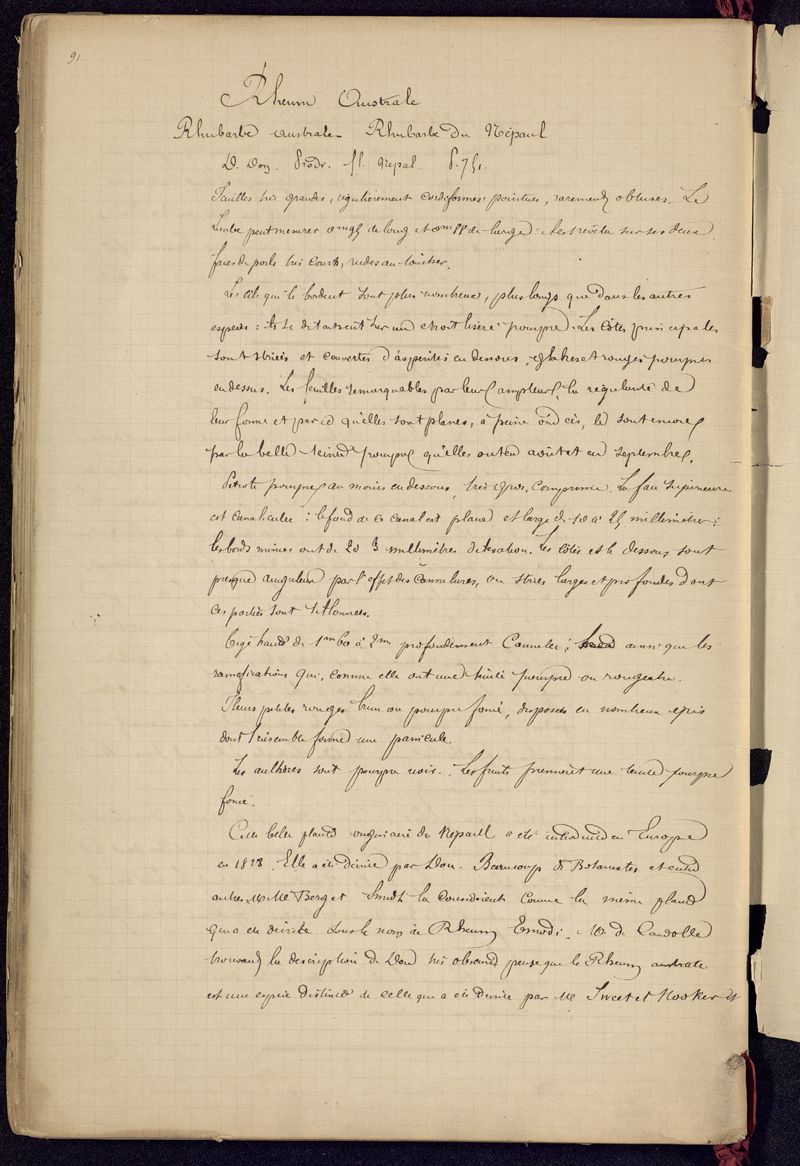 91
Rheum Australe
Rhubarbe australe - Rhubarbe du Népaul
D. Don. Prodr. fl. nepal P. 75.
Feuilles très grandes, régulièrement cordiformes pointues, rarement obtuses. Le
Limbe peut mesurer de long et de large. Il est revêtu sur ses deux
faces de poils très courts, rudes au toucher.
Les cils qui le bordent sont plus nombreux, plus longs que dans les autres
espèces : ils se détachent sur un étroit liséré pourpre. Les côtes principales
sont striées et couvertes d'aspérités en dessous, glabres et rouges pourpres
en dessus. Les feuilles remarquables par leur ampleur, la régularité de
leur forme et par ce qu'elles sont planes, à peine ondées, le sont encore
par la belle teinte pourpre qu'elles ont en août et en septembre.
Pétiole pourpre au moins en dessous, très gros, comprimé. La face supérieure
est canaliculée : le fond de ce canal est plane et large de 10 à 25 millimètres :
les bords minces ont de 2 à 3 millimètres d'élévation. Les côtés et le dessous sont
presque anguleux par l'effet des cannelures, ou stries larges et profondes dont
ces parties sont sillonnées.
Tige haute de 1m60 à 2m profondément cannelée ; ainsi que les
ramifications qui, comme elle ont une teinte pourpre ou rougeatre.
Fleurs petites rouges brun ou pourpre foncé, disposées en nombreux épis
dont l'ensemble forme une panicule.
Les anthères sont pourpre noir. Les fruits prennent une teinte pourpre
foncé.
Cette belle plante originaire du Népaul a été introduite en Europe
en 1828. Elle a été décrite par Don. Beaucoup de Botanistes et entre
autres M. M. Berg et Smith la considèrent comme la même plante
qui a été décrite sous le nom de Rheum Emodi. M. de Candolle
trouvant la description de Don très obscure pense que le Rheum australe
est une espèce distincte de celle qui a été décrite par M. Sweet et Hooker et